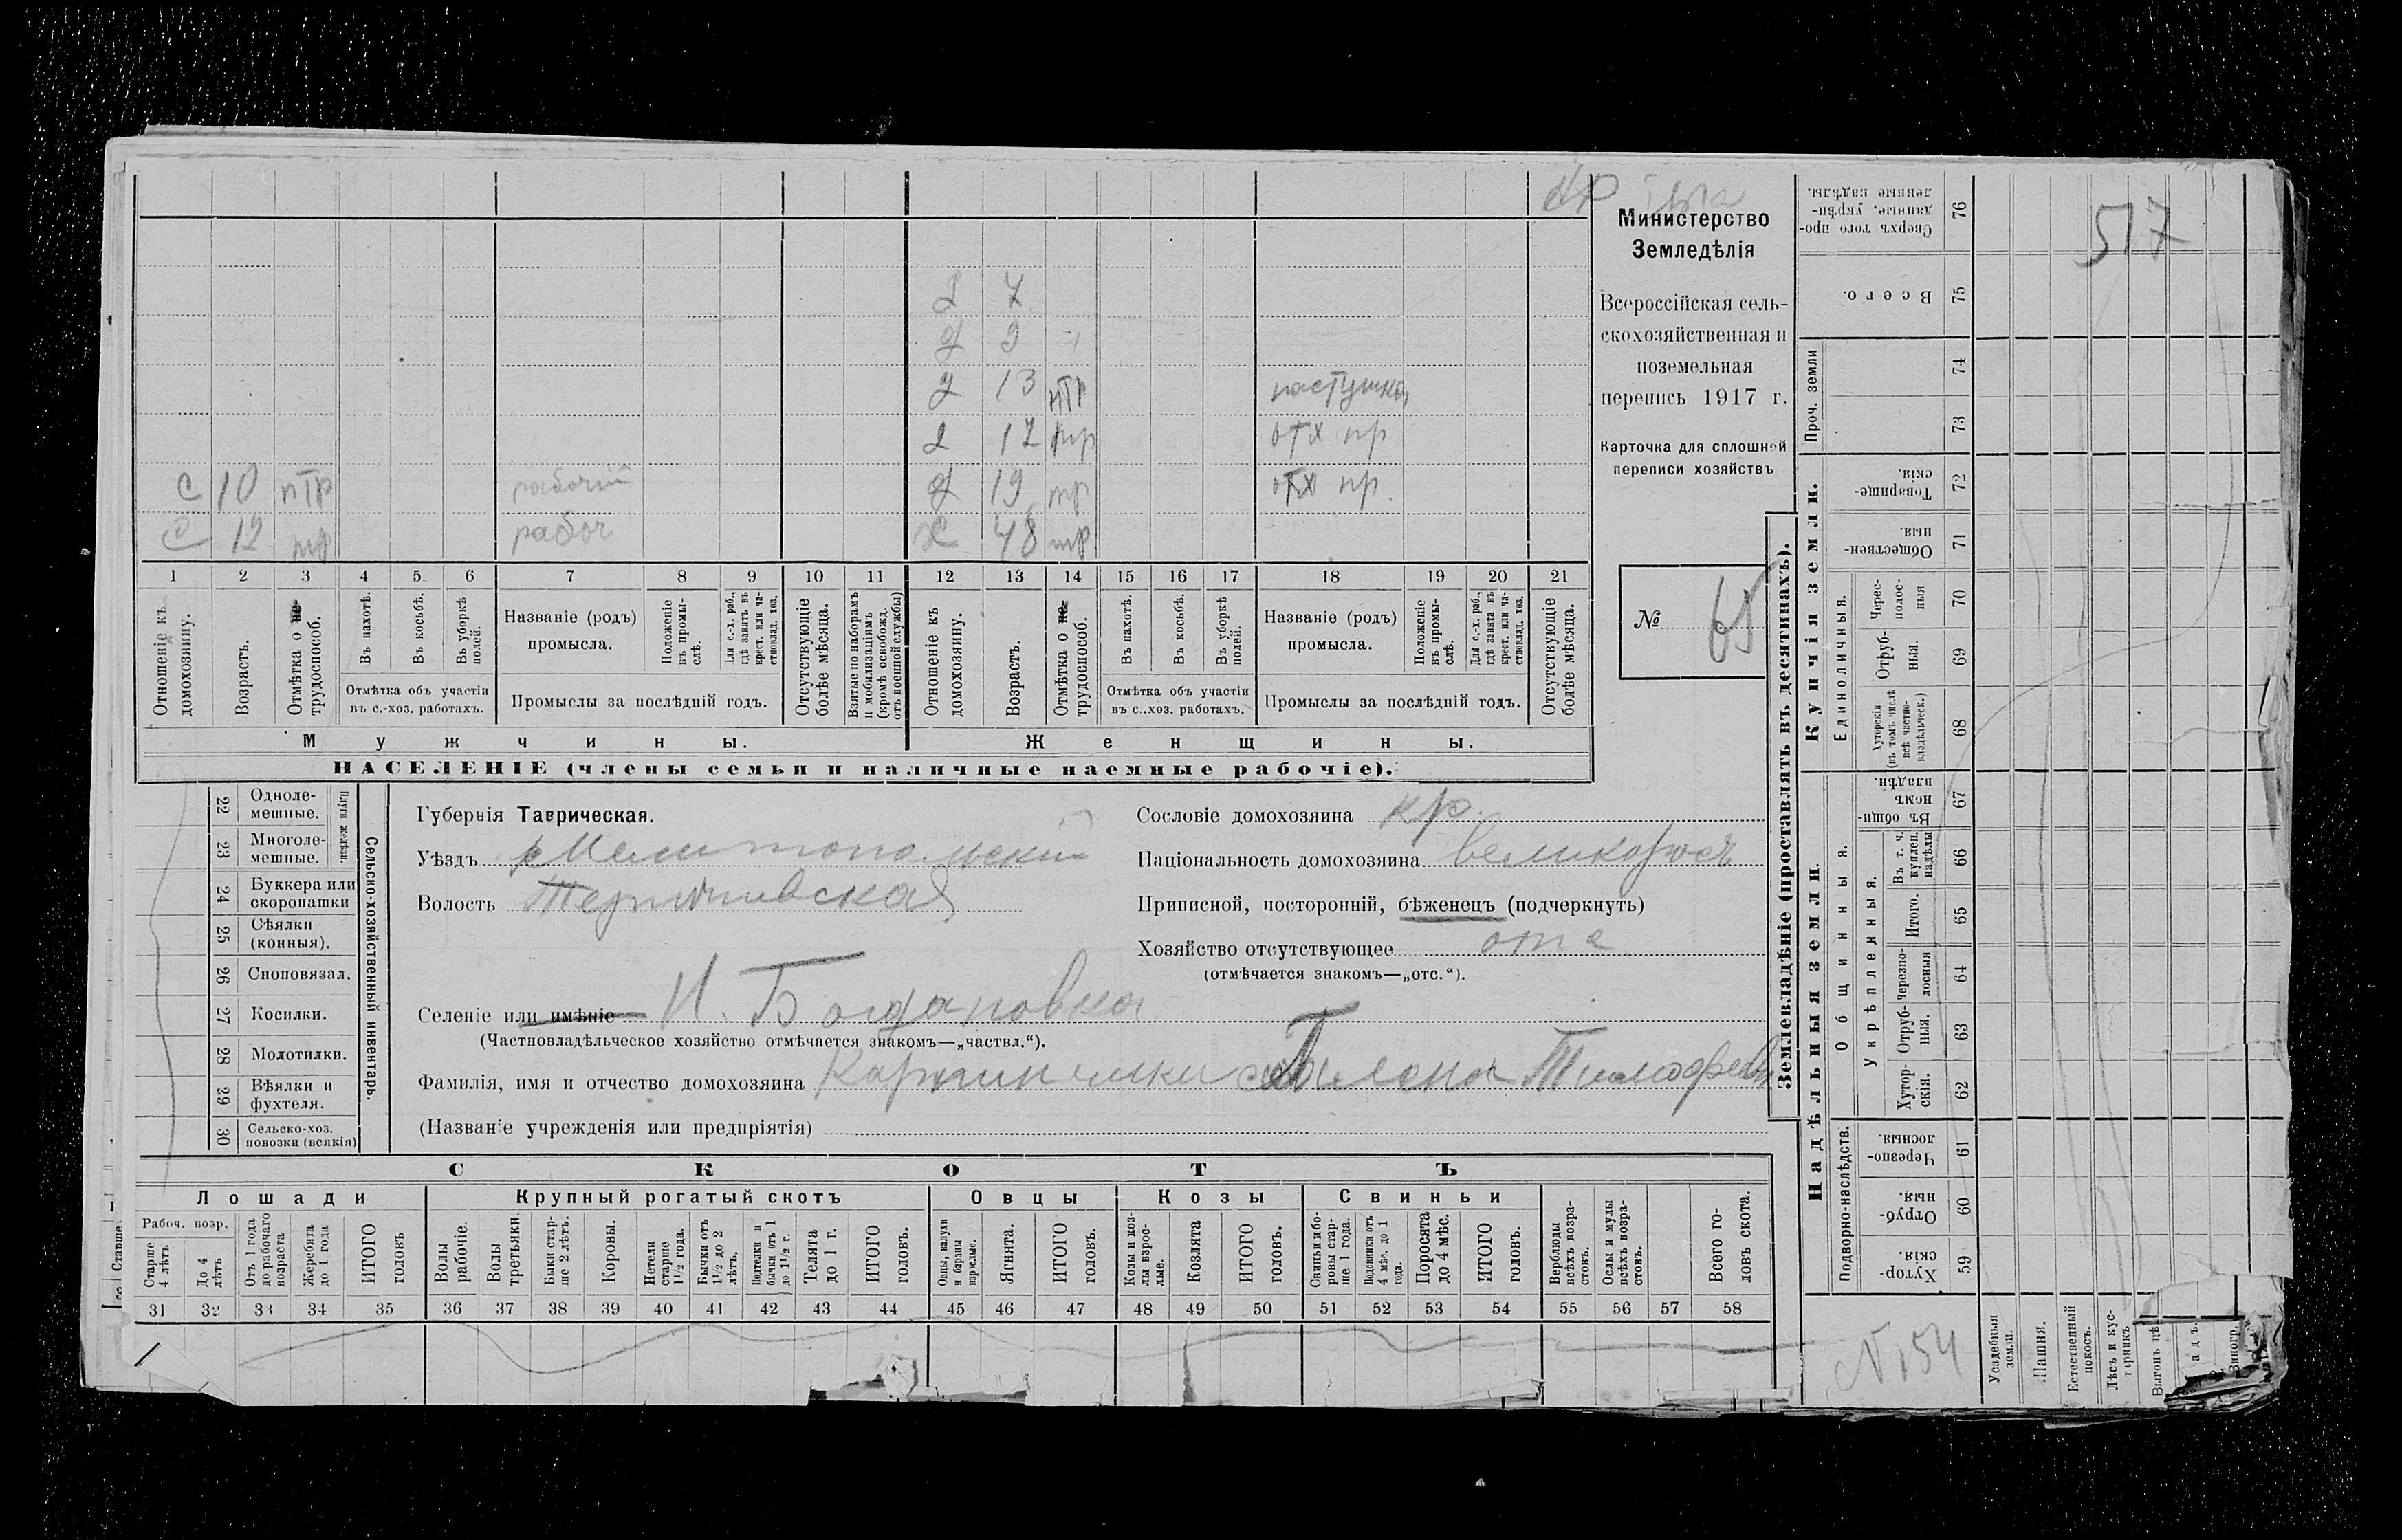 517
Министерство
Земледѣлія
Всероссійская сель-
скохозяйственная и
поземельная
перепись 1917 г.
Карточка для сплошной
переписи хозяйствъ
№ 65
д 7
д 9
д 13 птр пастушка
д 17 тр отх пр
с 10 птр рабочій д 19 тр отх пр.
с 12 тр рабоч х 48 тр
1 2 3 4 5 6 7 8 9 10 11 12 13 14 15 16 17 18 19 20 21
Отношеніе къ домохозяину.
Возрастъ.
Отмѣтка о не-трудоспособ.
Въ пахотѣ.
Въ косьбѣ.
Въ уборкѣ полей.
Отмѣтка объ участіи
въ с.-хоз. работахъ.
Названіе (родъ)
промысла.
Положеніе въ промы-слѣ.
Для с.-х. раб., гдѣ занятъ въ крест. или ча-стновлад. хоз.
Промыслы за послѣдній годъ.
Отсутствующіе болѣе мѣсяца.
Взятые по наборамъ и мобилизаціямъ (кромѣ освобожд. отъ военной службы)
Отношеніе къ домохозяину.
Возрастъ.
Отмѣтка о не-трудоспособ.
Въ пахотѣ.
Въ косьбѣ.
Въ уборкѣ полей.
Отмѣтка объ участіи
въ с.-хоз. работахъ.
Названіе (родъ)
промысла.
Положеніе въ промы-слѣ.
Для с.-х. раб., гдѣ занята въ крест. или ча-стновлад. хоз.
Промыслы за послѣдній годъ.
Отсутствующіе болѣе мѣсяца.
Мужчины. Женщины.
НАСЕЛЕНІЕ (члены семьи и наличные наемные рабочіе).
Сельско-хозяйственный инвентарь.
Плуги желѣзн.
22 Одноле-мешные.
23 Многоле-мешные.
24 Буккера или скоропашки
25 Сѣялки (конныя).
26 Сноповязал.
27 Косилки.
28 Молотилки.
29 Вѣялки и фухтеля.
30 Сельско-хоз. повозки (всякія)
Губернія Таврическая.
Уѣздъ Мелитопольскій
Волость
Сословіе домохозяина кр.
Національность домохозяина великороссъ
Приписной, посторонній, бѣженецъ (подчеркнуть)
Хозяйство отсутствующее
(отмѣчается знакомъ—„отс.“).
Селеніе или имѣніе Н. Богдановка
(Частновладѣльческое хозяйство отмѣчается знакомъ—„частвл.“).
Фамилія, имя и отчество домохозяина
(Названіе учрежденія или предпріятія)
СКОТЪ
Лошади Крупный рогатый скотъ Овцы Козы Свиньи
Рабоч. возр.
Старше 4 лѣтъ
До 4 лѣтъ
Отъ 1 года до рабочаго возраста
Жеребята до 1 года
ИТОГО головъ
Волы рабочіе.
Волы третьяки.
Быки стар-ше 2 лѣтъ.
Коровы.
Нетели старше 1½ года.
Бычки отъ 1½ до 2 лѣтъ.
Подтелки и бычки отъ 1 до 1½ г.
Телята до 1 г.
ИТОГО головъ.
Овцы, валухи и бараны взрослые.
Ягнята.
ИТОГО головъ.
Козы и коз-лы взрос-лые.
Козлята
ИТОГО головъ.
Свиньи бо-ровы стар-ше 1 года.
Подсвинки отъ 4 мѣс. до 1 года.
Поросята до 4 мѣс.
ИТОГО головъ.
Верблюды всѣхъ возра-стовъ.
Ослы и мулы всѣхъ возра-стовъ.
Всего го-ловъ скота.
31 32 33 34 35 36 37 38 39 40 41 42 43 44 45 46 47 48 49 50 51 52 53 54 55 56 57 58
Землевладѣніе (проставлять въ десятинахъ).
Сверхъ того про-данные, укрѣп-ленные надѣлы. 76
Всего. 75
Проч. земли 74 73
Купчія земли.
Товарище-скія. 72
Обществен-ныя 71
Единоличныя.
Черес-полос-ныя 70
Отруб-ныя. 69
Хуторскія (въ томъ числѣ всѣ частно-владѣльческ.) 68
Надѣльныя земли.
Общинныя.
Въ общин-номъ владѣн. 67
Укрѣпленныя.
Въ т. ч. куплен. надѣлы 66
Итого. 65
Черезпо-лосныя 64
Отруб-ныя. 63
Хутор-скія. 62
Подворно-наслѣдств.
Черезпо-лосныя. 61
Отруб-ныя. 60
Хутор-скія 59
Усадебныя земли.
Пашня.
Естественный покосъ.
Лѣсъ и кус-тарникъ
Выгонъ
Виногр.
№154
Старше